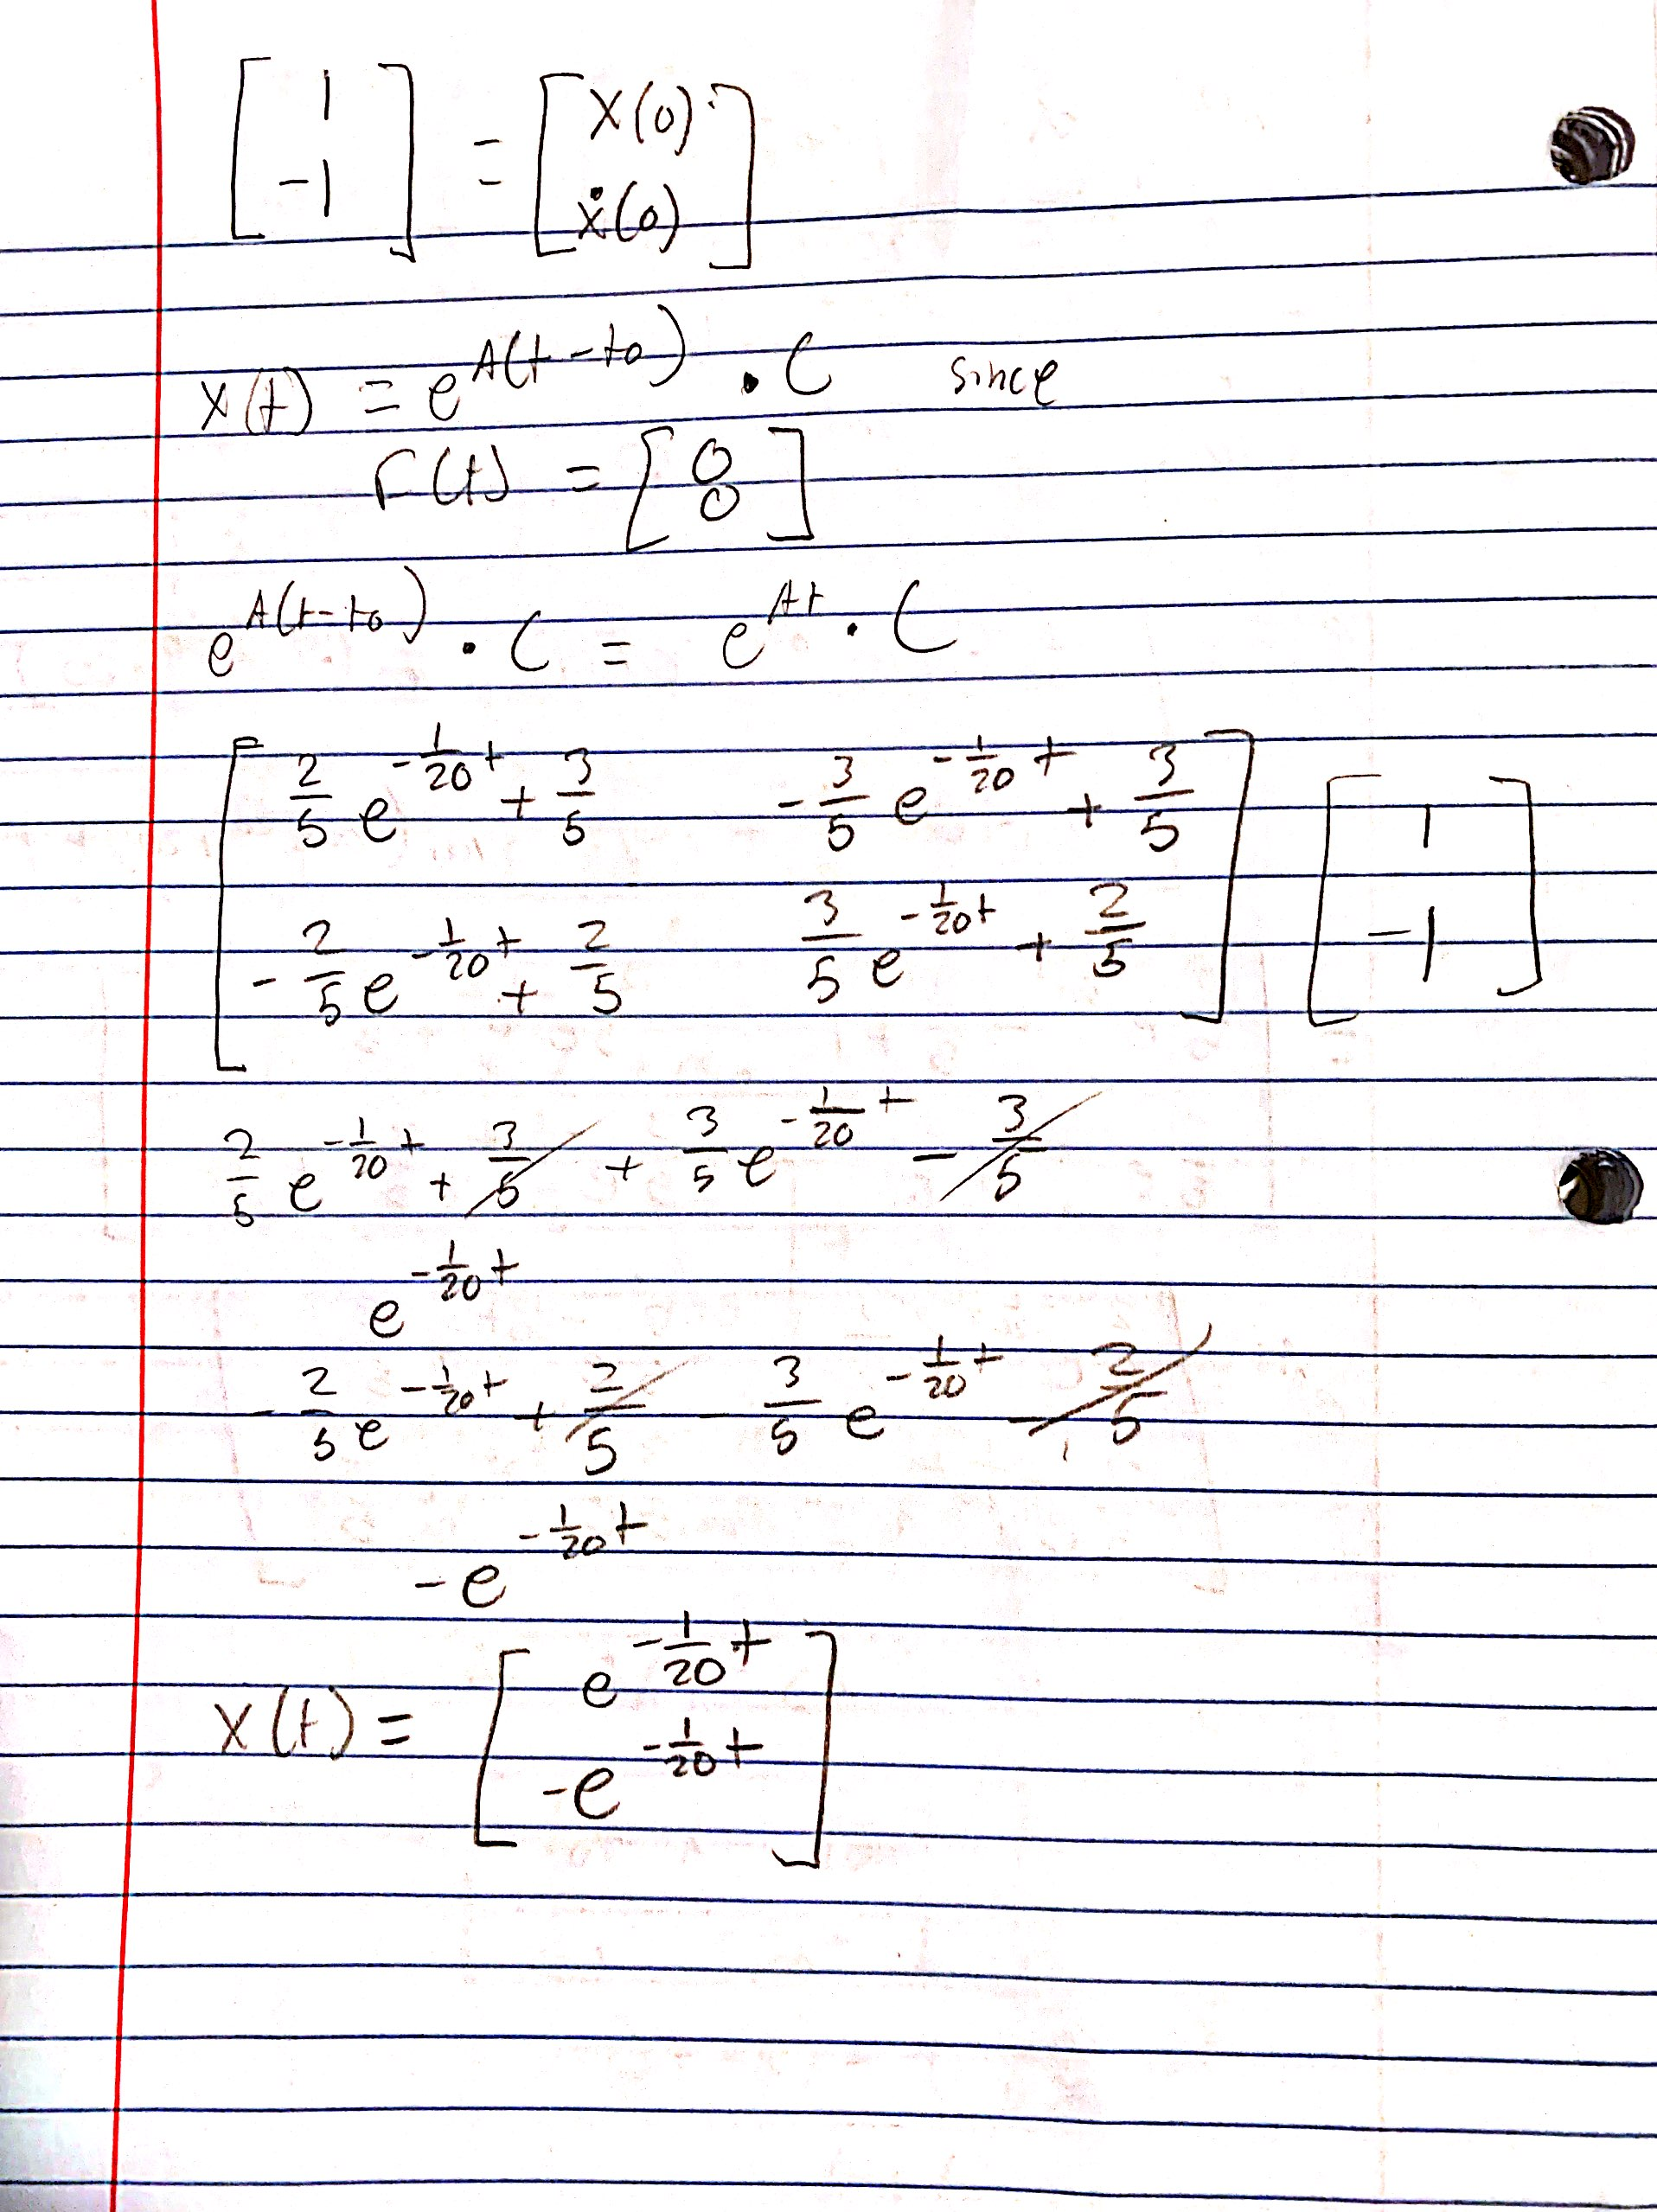 [ 1 ] = [ X(0) ]
[ -1 ] [ ẋ(0) ]
X(t) = e^{A(t-t0)} · C since
F(t) = [ 0 0 ]
e^{A(t-t0)} · C = e^{At} · C
[ 2/5 e^{-1/20 t} + 3/5 -3/5 e^{-1/20 t} + 3/5 ] [ 1 ]
[ -2/5 e^{-1/20 t} + 2/5 3/5 e^{-1/20 t} + 2/5 ] [ -1 ]
2/5 e^{-1/20 t} + 3/5 + 3/5 e^{-1/20 t} - 3/5
e^{-1/20 t}
-2/5 e^{-1/20 t} + 2/5 - 3/5 e^{-1/20 t} - 2/5
-e^{-1/20 t}
X(t) = [ e^{-1/20 t} ]
[ -e^{-1/20 t} ]